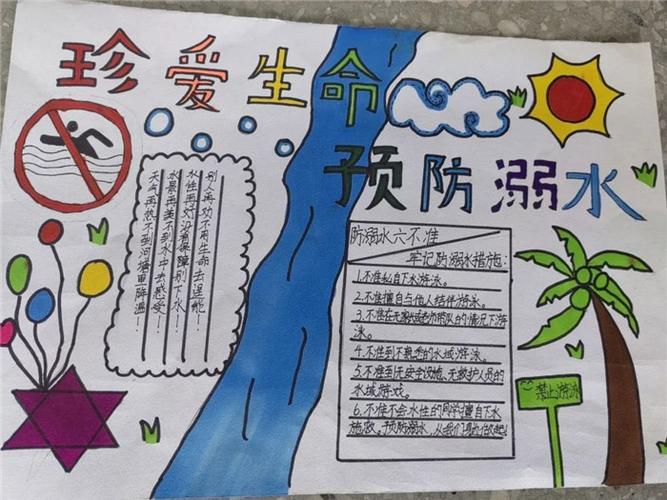 珍爱生命
预防溺水
别人再劝不用生命去逞能！
水性再好没有保障别下水！
水景再美不到水中去感受！
天气再热不到河塘里降温！
防溺水六不准
牢记防溺水措施：
1.不准私自下水游泳。
2.不准擅自与他人结伴游泳。
3.不准在无家长或老师带队的情况下游
泳。
4.不准到不熟悉的水域游泳。
5.不准到无安全设施、无救护人员的
水域游戏。
6.不准不会水性的同学擅自下水
施救。预防溺水，从我们现在做起！
禁止游泳